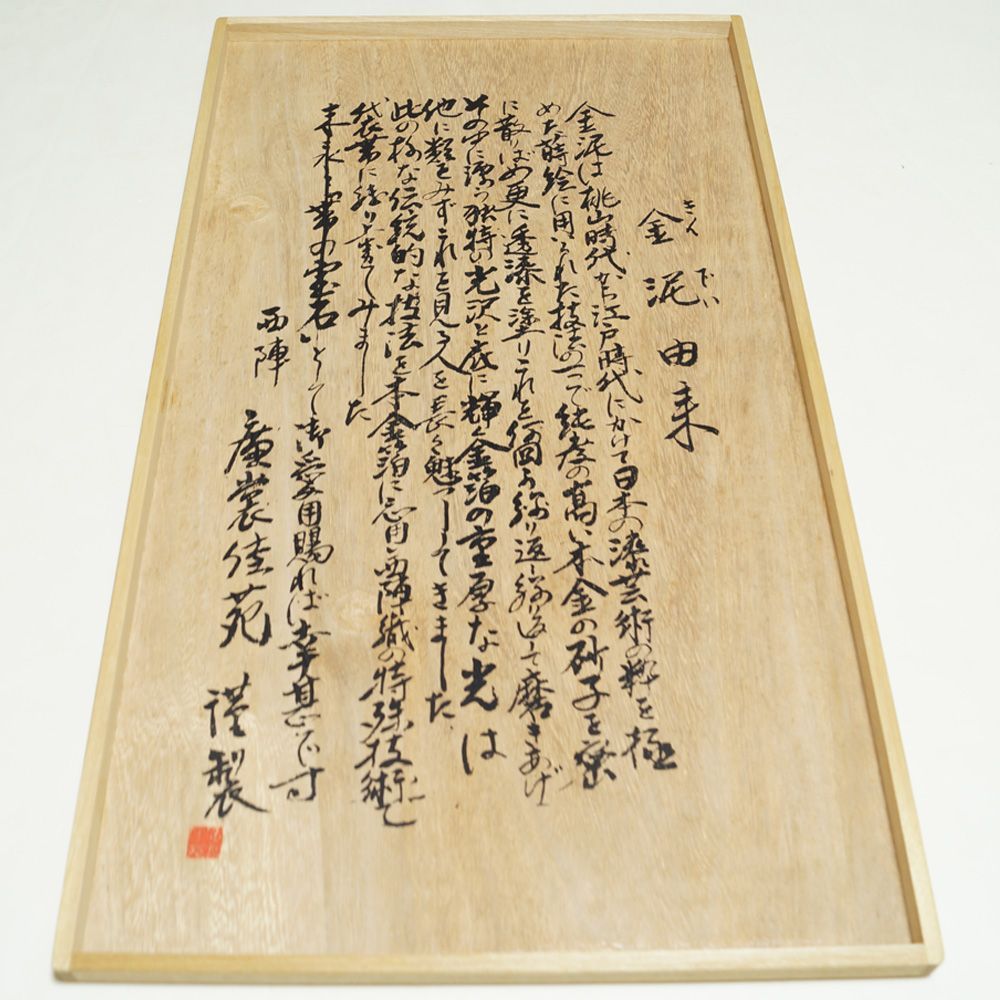 きん でい
金泥由来
金泥は桃山時代から江戸時代にかけて日本の漆芸術の粋を極
めた蒔絵に用いられた技法の一つで純度の高い本金の砂子を蜜
に散りばめ更に透漆を塗りこれを何回も繰り返し繰り返して磨きあげ
その中に漂う独特の光沢と底に輝く金箔の重厚な光は
他に類をみずこれを見る人を長く魅了してきました
此の様な伝統的な技法を本金箔に応用西陣織の特殊技術で
袋帯に織り上げてみました
末永く〝帯の宝石〟として御愛用賜れば幸甚です
西陣 廣裳佳苑 謹製